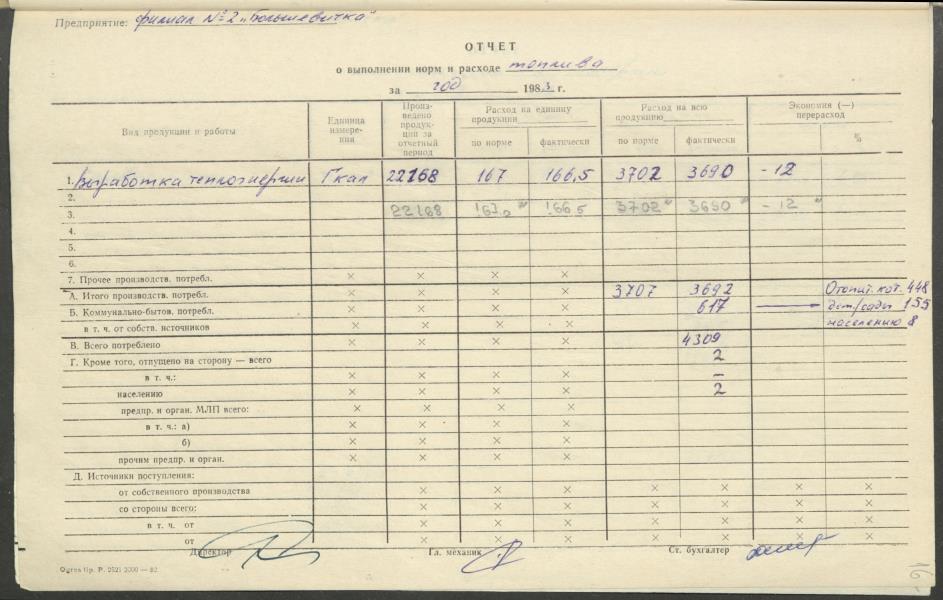 Предприятие: филиал №2 „Большевичка"
ОТЧЕТ
о выполнении норм и расходе топлива
за год 1983 г.
Вид продукции и работы
Единица измере- ния
Произ- ведено продук- ции за отчетный период
Расход на единицу продукции
по норме фактически
Расход на всю продукцию
по норме фактически
Экономия (—) перерасход
%
1. Выработка теплоэнергии Гкал 22168 167 166,5 3702 3690 -12
2.
3. 22168 167,0 166,5 3702 3690 -12
4.
5.
6.
7. Прочее производств. потребл. × × × ×
А. Итого производств. потребл. × × × × 3707 3692 Отопит. кот. 448
Б. Коммунально-бытов. потребл. × × × × 617 дет/сады 155
в т. ч. от собств. источников × × × × населению 8
В. Всего потреблено × × × × 4309
Г. Кроме того, отпущено на сторону — всего 2
в т. ч.: × × × × –
населению × × × × 2
предпр. и орган. МЛП всего: × × × ×
в т. ч.: а) × × × ×
б) × × × ×
прочим предпр. и орган. × × × ×
Д. Источники поступления:
от собственного производства × × × × × × ×
со стороны всего: × × × × × × ×
в т. ч. от × × × × × × ×
от × × × × × × ×
Директор Гл. механик Ст. бухгалтер
Р. 2521 2000 — 82